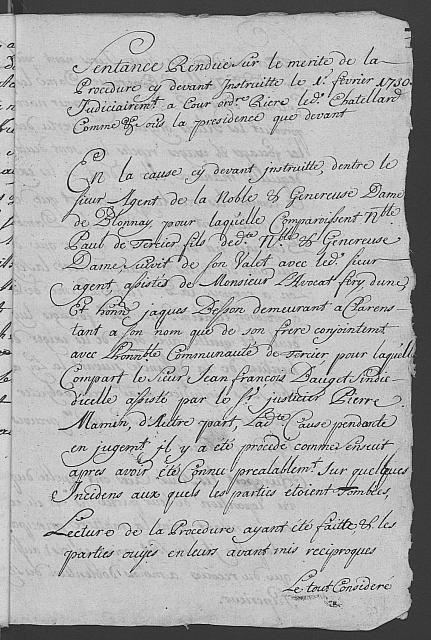 Sentance Rendue sur le merite de la
Procedure cy devant Instruitte le 1.r fevrier 1730.
Judiciairem.t a Cour ord.re Riere led.t Chatellard
Comme & sous la presidence que devant
En la cause cy devant instruitte, dentre le
Sieur Agent de la Noble & Genereuse Dame
de Blonnay, pour laquelle Comparoissent Nble
Paul de Tercier fils de d.te Nble & Genereuse
Dame, suivit de son Valet avec led.t Sieur
agent, assistes de Monsieur L'Avocat fevy dune
Et honn.e jaques Besson demeurant a Clarens
tant a son nom que de son frere conjointem.t
avec L'honn.ble Communauté de Tercier pour laquelle
Compart le Sieur Jean François Dauget Sindic
dicelle assisté par le S.r justicier Pierre
Mamin, d'Aultre part, Lad.te Cause pendante
en jugem.t Il y a été procedé comme sensuit
apres avoir été Connu prealablem.t Sur quelques
Incidens aux quels les parties étoient Tombées,
Lecture de la Procedure ayant été faitte & les
parties ouyes en leurs avant mis reciproques
Le tout Consideré